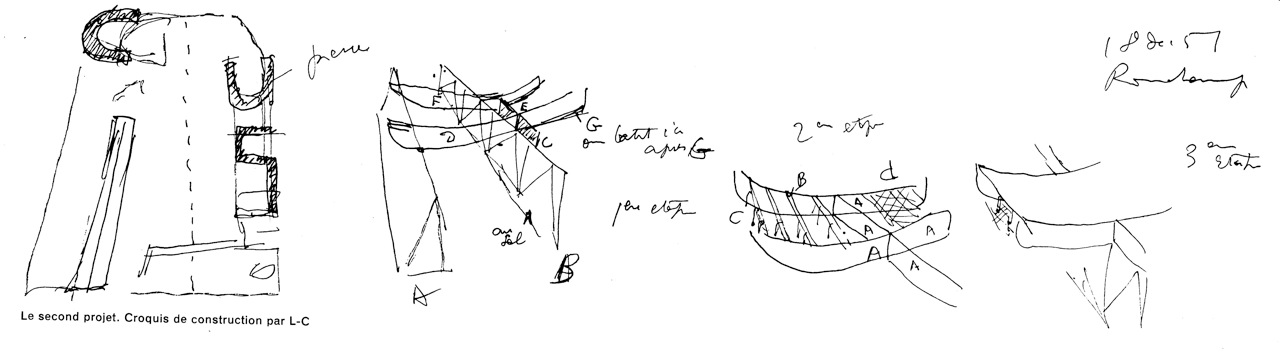 18 dec 57
Ronchamp
pierre
F
E
D
C
G
on batit ici
après G
A
au sol
A
B
1ère etape
2em etape
B
d
C
A
A
A
A
A
3em
Etape
Le second projet. Croquis de construction par L-C